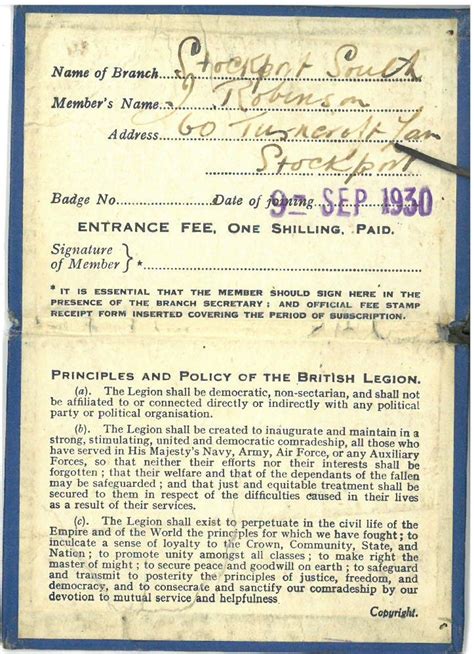 Name of Branch Stockport South
Member's Name J Robinson
Address 60 Turncroft Lane
Stockport
Badge No. Date of joining 9 SEP 1930
ENTRANCE FEE, ONE SHILLING, PAID.
Signature
of Member } *
* IT IS ESSENTIAL THAT THE MEMBER SHOULD SIGN HERE IN THE
PRESENCE OF THE BRANCH SECRETARY; AND OFFICIAL FEE STAMP
RECEIPT FORM INSERTED COVERING THE PERIOD OF SUBSCRIPTION.
PRINCIPLES AND POLICY OF THE BRITISH LEGION.
(a). The Legion shall be democratic, non-sectarian, and shall not
be affiliated to or connected directly or indirectly with any political
party or political organisation.
(b). The Legion shall be created to inaugurate and maintain in a
strong, stimulating, united and democratic comradeship, all those who
have served in His Majesty's Navy, Army, Air Force, or any Auxiliary
Forces, so that neither their efforts nor their interests shall be
forgotten; that their welfare and that of the dependants of the fallen
may be safeguarded; and that just and equitable treatment shall be
secured to them in respect of the difficulties caused in their lives
as a result of their services.
(c). The Legion shall exist to perpetuate in the civil life of the
Empire and of the World the principles for which we have fought; to
inculcate a sense of loyalty to the Crown, Community, State, and
Nation; to promote unity amongst all classes; to make right the
master of might; to secure peace and goodwill on earth; to safeguard
and transmit to posterity the principles of justice, freedom, and
democracy, and to consecrate and sanctify our comradeship by our
devotion to mutual service and helpfulness.
Copyright.